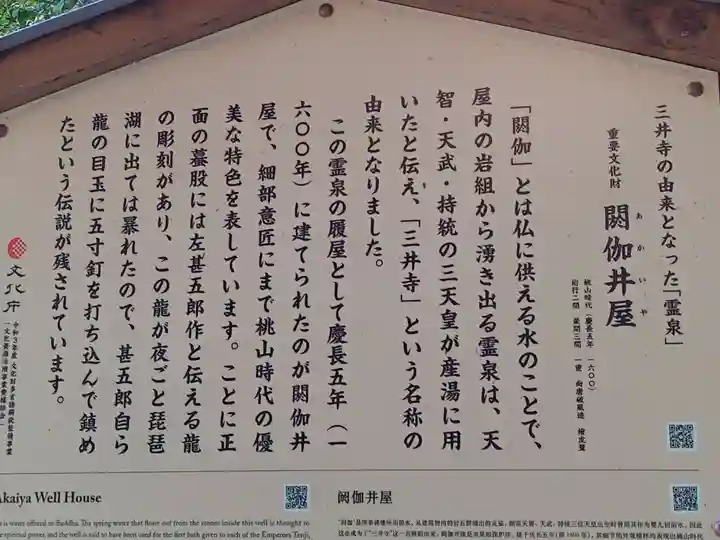 三井寺の由来となった「霊泉」
重要文化財
閼伽井屋
あかいや
桃山時代(慶長五年 一六〇〇)
桁行二間 梁間三間 一重 向唐破風造 檜皮葺
「閼伽」とは仏に供える水のことで、
屋内の岩組から湧き出る霊泉は、天
智・天武・持統の三天皇が産湯に用
いたと伝え、「三井寺」という名称の
由来となりました。
この霊泉の覆屋として慶長五年(一
六〇〇年)に建てられたのが閼伽井
屋で、細部意匠にまで桃山時代の優
美な特色を表しています。ことに正
面の蟇股には左甚五郎作と伝える龍
の彫刻があり、この龍が夜ごと琵琶
湖に出ては暴れたので、甚五郎自ら
龍の目玉に五寸釘を打ち込んで鎮め
たという伝説が残されています。
文化庁
Akaiya Well House
is water offered to Buddha. The spring water that flows out from the stones inside this well is thought to
spiritual power, and the well is said to have been used for the first bath given to each of the Emperors Tenji,
閼伽井屋